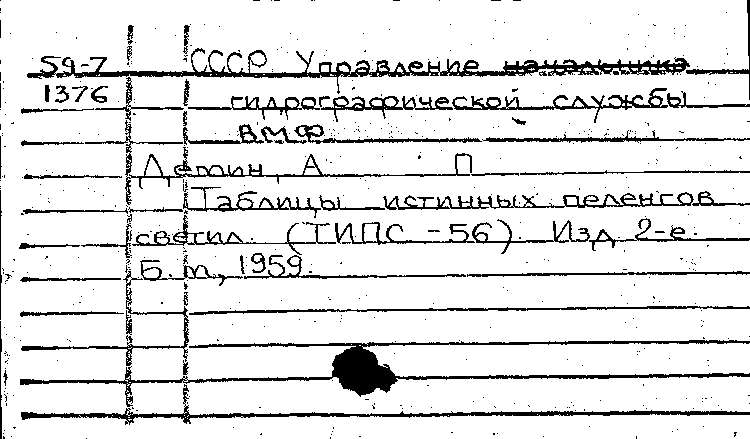 59-7 СССР Управление начальника
1376 гидрографической службы
ВМФ
Демин, А П
Таблицы истинных пеленгов
светил. (ТИПС - 56). Изд. 2-е.
Б. м., 1959.